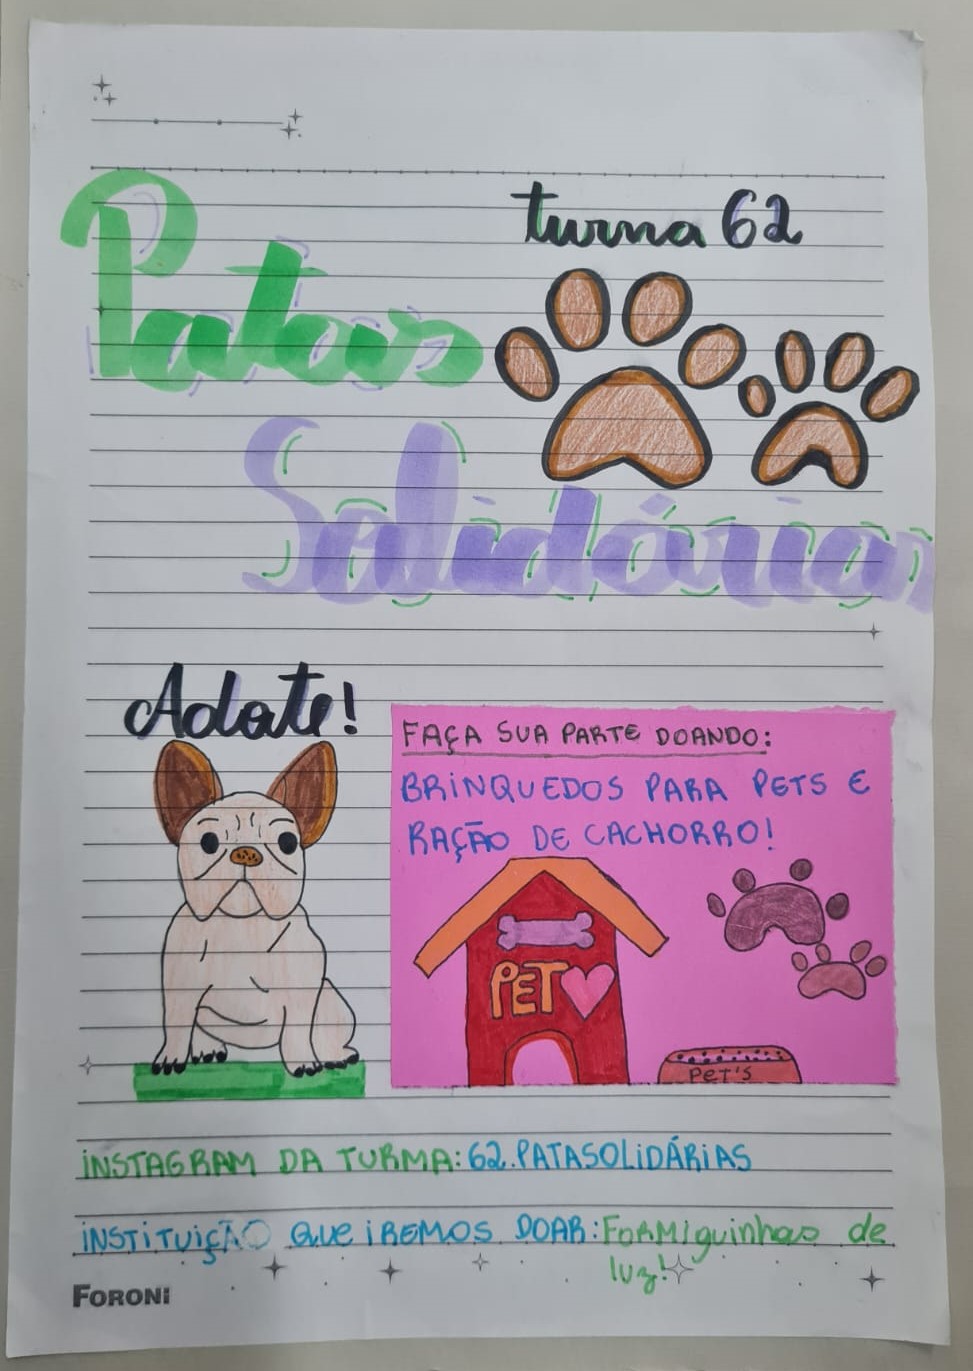 turma 62
Patas
Solidárias
Adote!
FAÇA SUA PARTE DOANDO:
BRINQUEDOS PARA PETS E
RAÇÃO DE CACHORRO!
PET
PET'S
INSTAGRAM DA TURMA: 62.PATASOLIDÁRIAS
INSTITUIÇÃO QUE IREMOS DOAR: FORMiguinhas de
luz!
FORONI